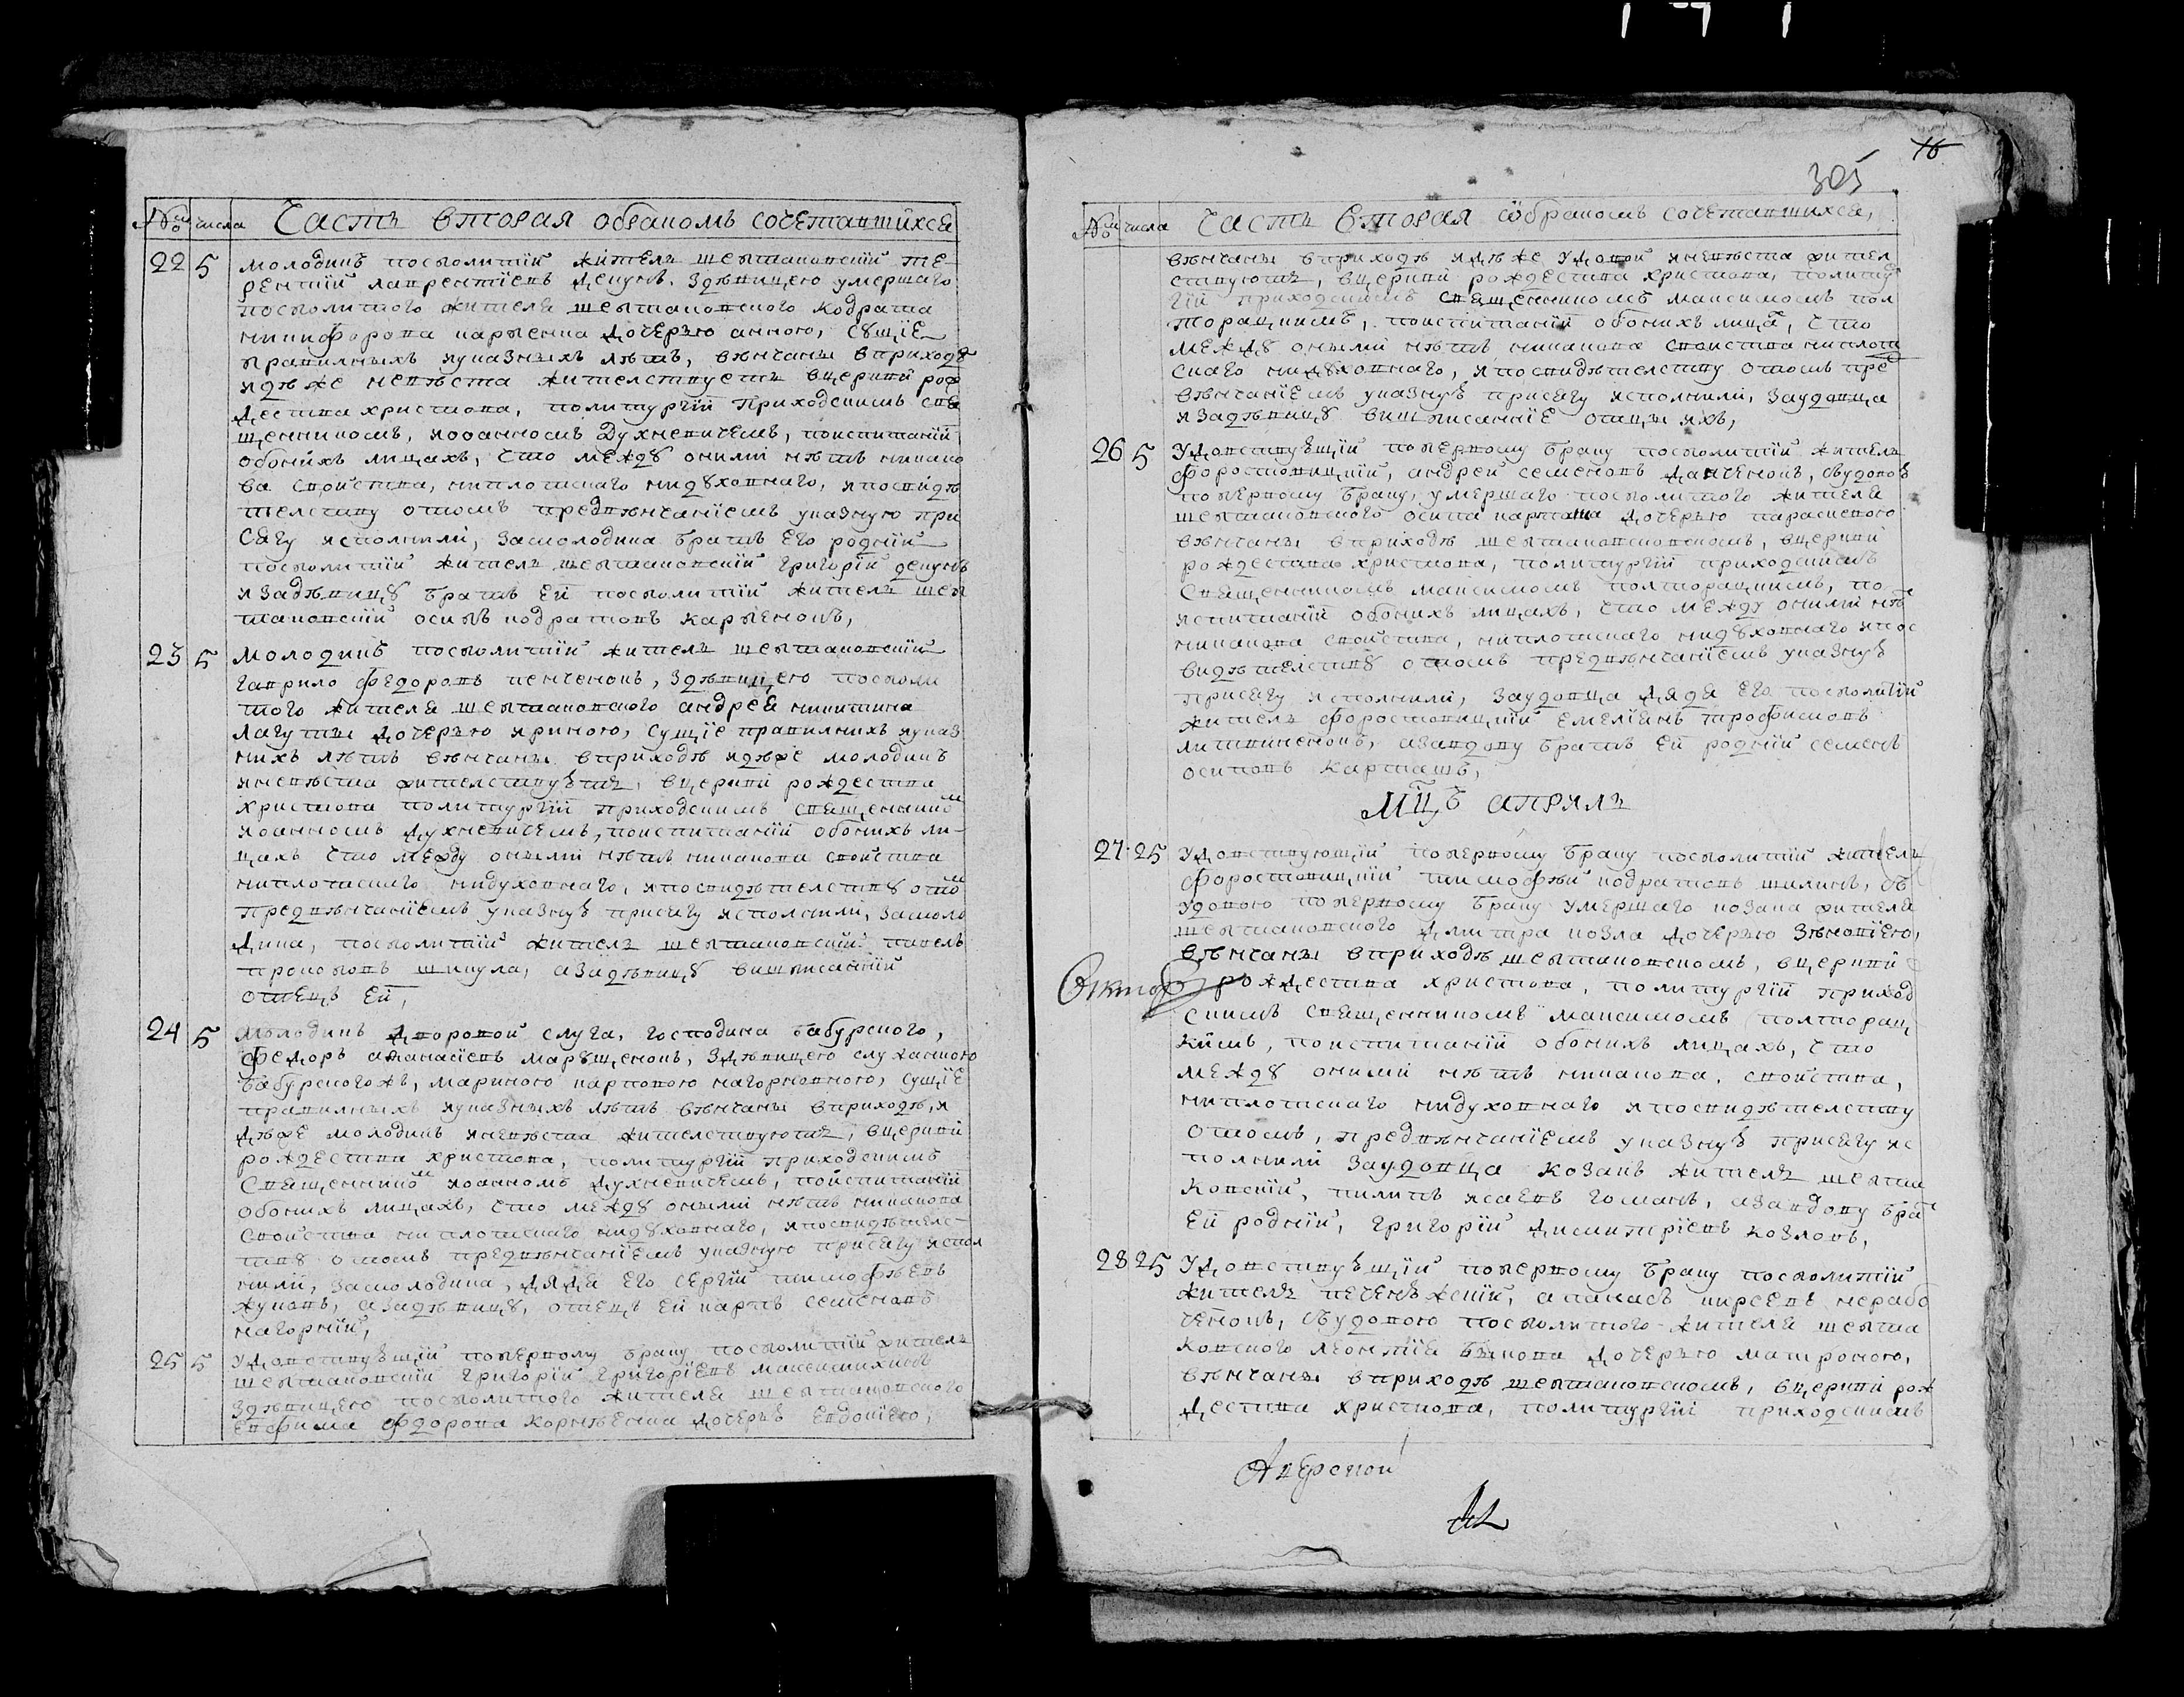 № числа Часть вторая обраномъ сочетавшихся
22 5 молодикъ посполитій житель шептаковскій те
рентій лаврентіевъ децукъ. здѣвицею умершаго
посполитого жителя шептаковского кодрата
никифорова карпенка дочерью анною, сущіе
правилныхъ иуказныхъ лѣтъ, вѣнчаны вприходѣ
идѣже невѣста жителствуетъ вцеркви рож
дества христова, политургіи приходскимъ свя
щенникомъ, иоанномъ Духневичемъ, повспитаніи
обоихъ лицахъ, что между оними нѣтъ никако
ва свойства, ниплотскаго нидуховнаго, ипосвидѣ
телству отомъ предвѣнчаніемъ указную при
сягу исполнили, замолодика братъ его родній
посполитій житель шептаковскій григорій децукъ
изадѣвицу братъ ей посполитій житель шеп
таковскій осипъ кодратовъ карпенокъ,
23 5 молодикъ посполитій житель шептаковскій
гаврило федоровъ пенченокъ, здѣвицею посполи
того жителя шептаковского андрея никитина
лагуты дочерью ириною, сущіе правилнихъ иуказ
нихъ лѣтъ вѣнчаны вприходѣ идѣже молодикъ
иневѣста жителствуетъ, вцеркви рождества
христова политургіи приходскимъ священником
иоанномъ духневичемъ, повспитаніи обоихъ ли-
цахъ что между оными нѣтъ никакова свойства
ниплотскаго нидуховнаго, ипосвидѣтелству отом
предвѣнчаніемъ указну присягу исполнили, замоло
дика, посполитій житель шептаковскій павелъ
прокоповъ шикула, азадѣвицу вишписанній
отецъ ей,
24 5 молодикъ дворовой слуга, господина бабурского,
федоръ афанасіевъ марущенокъ, здѣвицею служанкою
бабурскогожъ, мариною карповою нагорновною, сущіе
правилныхъ иуказныхъ лѣтъ вѣнчаны вприходѣ, и
дѣже молодикъ иневѣста жителствуютъ, вцеркви
рождества христова, политургіи приходскимъ
священником иоанномъ духневичемъ, повспитаніи
обоихъ лицахъ, что между оными нѣтъ никакова
свойства ниплотскаго нидуховнаго, ипосвидѣтелс-
тву отомъ предвѣнчаніемъ указную присягу испол
нили, замолодика, дядя его сергій тимофѣевъ
жуковъ, азадѣвицу, отецъ ей карпъ семеновъ
нагорній,
25 5 удовствующій поперному браку посполитій житель
шептаковскій григорій григоріевъ
здѣвицею посполитого жителя шептаковского
евфима федорова корнѣенка дочерью евдокіею,
305
№ числа Часть вторая обракомъ сочетавшихся,
вѣнчаны вприходѣ идѣже удовой иневѣста жител
ствуютъ, вцеркви рождества христова, политур
гіи приходскимъ священникомъ максимомъ пол
торацкимъ, повспитаніи обоихъ лицъ, что
между оными нѣтъ никакова свойства ниплот
скаго нидуховнаго, ипосвидѣтелству отомъ пре
вѣнчаніемъ указну присягу исполнили, заудовца
изадѣвицу вишписанніе отцы ихъ,
26 5 удовствующій поперному браку посполитій житель
форостовицкій, андрей семеновъ даниченокъ, свудовою
поперному браку, умершаго посполитого жителя
шептаковского осипа карташа дочерью параскевою
вѣнчаны вприходѣ шептаковскомъ, вцеркви
рождества христова, политургіи приходскимъ
священникомъ максимомъ полторацкимъ, по
испитаніи обоихъ лицахъ, что между оними нѣтъ
никакова свойства, ниплотскаго нидуховнаго ипос
видѣтелству отомъ предвѣнчаніемъ указну
присягу исполнили, заудовца дядя его посполитій
житель форостовицкій емеліанъ трофимовъ
литвиненокъ, азавдову братъ ей родній семенъ
осиповъ карташъ,
Мцъ априль
27 25 удовствующій поперному браку посполитій житель
форостовицкій тимофѣй кодратовъ шилинъ, съ
удовою поперному браку умершаго козака жителя
шептаковского дмитра козла дочерью зѣновіею,
вѣнчаны вприходѣ шептаковскомъ, вцеркви
рождества христова, политургіи приход
скимъ священникомъ максимомъ полторац
кимъ, повспитаніи обоихъ лицахъ, что
между оними нѣтъ никакова, свойства,
ниплотскаго нидуховнаго ипосвидѣтелству
отомъ, предвѣнчаніемъ указну присягу ис
полнили заудовца козакъ житель шепта
ковскій, пилипъ исаевъ гоманъ, азавдову брат
ей родній, григорій димитріевъ козловъ,
28 25 удовствующій поперному браку посполитій
житель печенѣжскій, апанасъ кирѣевъ нерабо
ченокъ, свудовою посполитого жителя шепта
ковского леонтія быкова дочерью матроною,
вѣнчаны вприходѣ шептаковскомъ, вцеркви рож
дества христова, политургіи приходскимъ